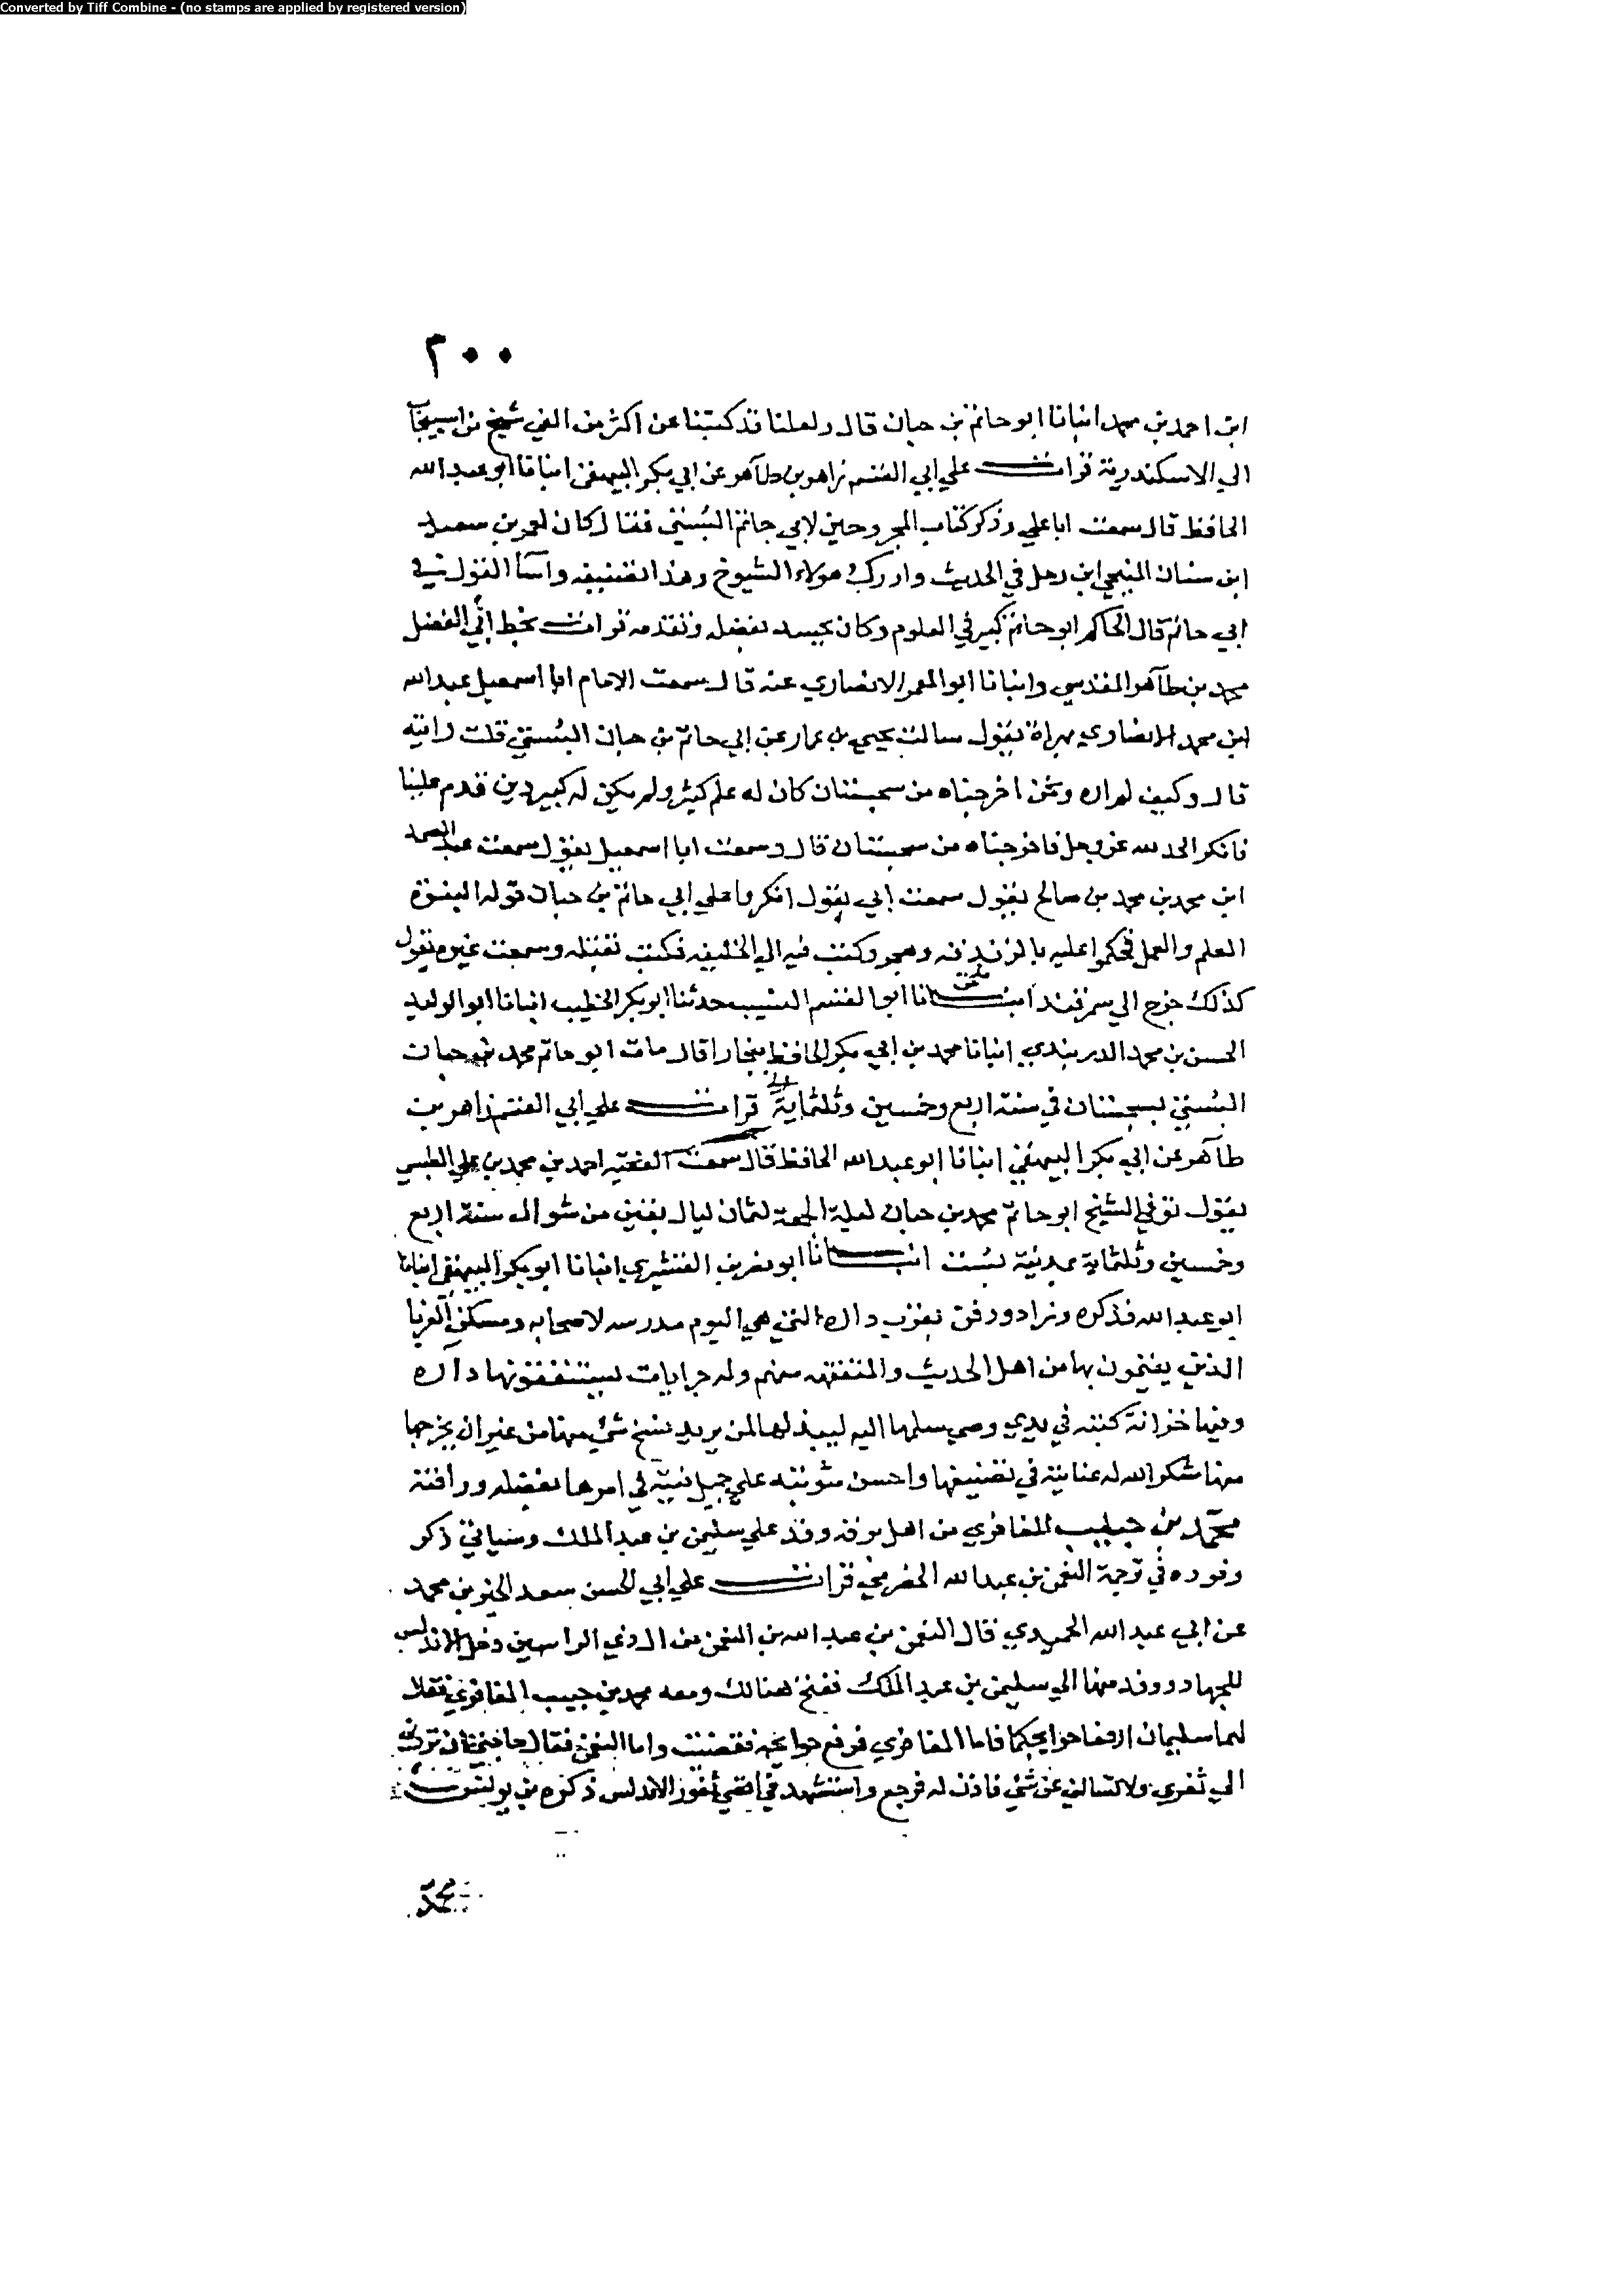 Converted by Tiff Combine - (no stamps are applied by registered version)
٢٠٠
ابن احمد بن محمد انبانا ابو حاتم بن حبان قال ولعلنا قد كتبنا عن اكثر من الفي شيخ من اسبيجاب
الي الاسكندرية قرات علي ابي القسم زاهر بن طاهر عن ابي بكر البيهقي انبانا ابو عبد الله
الحافظ قال سمعت ابا علي وذكر كتاب المجروحين لابي حاتم البستي فقال كان لعمر بن سعيد
ابن سنان المنبجي ابن رحل في الحديث وادرك هولاء الشيوخ وهذا تصنيفه واسا القول في
ابي حاتم قال الحاكم ابو حاتم كبير في العلوم وكان يحسد بفضله وتقدمه قرات بخط ابي الفضل
محمد بن طاهر المقدسي وانبانا ابو المعمر الانصاري عنه قال سمعت الامام ابا اسمعيل عبد الله
ابن محمد الانصاري بهراة يقول سالت يحيي بن عمار عن ابي حاتم بن حبان البستي قلت رايته
قال وكيف لم اره ونحن اخرجناه من سجستان كان له علم كثير ولم يكن له كبير دين قدم علينا
فانكر الحد لله عز وجل فاخرجناه من سجستان قال وسمعت ابا اسمعيل يقول سمعت عبد الصمد
ابن محمد بن محمد بن صالح يقول سمعت ابي يقول انكروا علي ابي حاتم بن حبان قوله النبوة
العلم والعمل فحكموا عليه بالزندقه وهجر وكتب فيه الي الخليفه فكتب بقتله وسمعت غيره يقول
كذلك خرج الي سمرقند انبانا ابو القسم النسيب حدثنا ابو بكر الخطيب انبانا ابو الوليد
الحسن بن محمد الدربندي انبانا محمد بن ابي بكر الحافظ ببخارا قال مات ابو حاتم محمد بن حبان
البستي بسجستان في سنة اربع وخمسين وثلثماية قرات علي ابي القسم زاهر بن
طاهر عن ابي بكر البيهقي انبانا ابو عبد الله الحافظ قال سمعت الفقيه احمد بن محمد بن علي الطبسي
يقول توفي الشيخ ابو حاتم محمد بن حبان ليلة الجمعة لثمان ليال بقين من شوال سنة اربع
وخمسين وثلثماية بمدينة بست انبانا ابو نصر بن القشيري انبانا ابو بكر البيهقي انبانا
ابو عبد الله فذكره وزاد ودفن بقرب داره التي هي اليوم مدرسه لاصحابه ومسكن الغربا
الذين يقيمون بها من اهل الحديث والمتفقهه منهم وله جرايات يستنفقونها داره
وفيها خزانة كتبه في يدي وصي سلمها اليه ليبذلها لمن يريد نسخ شئ منها من غير ان يخرجها
منها شكر الله له عناية في تصنيفها واحسن مثوبته علي جميل نيته في امرها بفضله ورافته
محمد بن حبيب المعافري من اهل برقه وفد علي سليمن بن عبد الملك وسياتي ذكر
وفوده في ترجمة النعمن بن عبد الله الحضرمي قرات علي ابي الحسن سعد الخير بن محمد
عن ابي عبد الله الحميدي قال النعمن بن عبد الله بن النعمن دخل الاندلس
للجهاد ووفد منها الي سليمن بن عبد الملك بفتح هنالك ومعه محمد بن حبيب المعافري فقال
لهما سليمان ارفعا حوايجكما فاما المعافري فرفع حوايجه فقضيت واما النعمن فقال حاجتي ان تردني
الي ثغري ولا تسالني عن شئ فاذن له فرجع واستشهد في اقصي ثغور الاندلس ذكره بن يونس
محمد